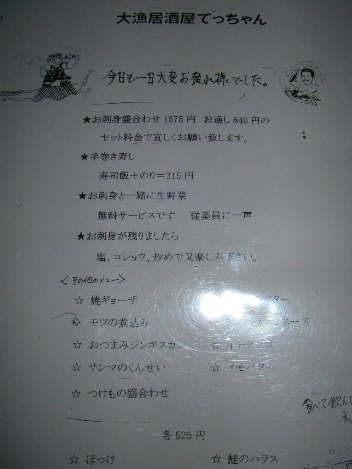 大漁居酒屋てっちゃん
今日も一日大変お疲れ様でした。
★お刺身盛合わせ 1575円 お通し 840円の
セット料金で宜しくお願い致します。
★手巻き寿し
寿司飯+のり=315円
★お刺身と一緒に生野菜
無料サービスです 従業員に一声
★お刺身が残りましたら
塩、コショウ、炒めで又楽しみ下さい。
<その他のメニュー>
☆ 焼ギョーザ
☆ モツの煮込み ーズ
☆ おつまみジンギスカ ☆
☆ サンマのくんせい ☆ イモバター
☆ つけもの盛合わせ
各525円
☆ ほっけ ☆ 鮭のハラス